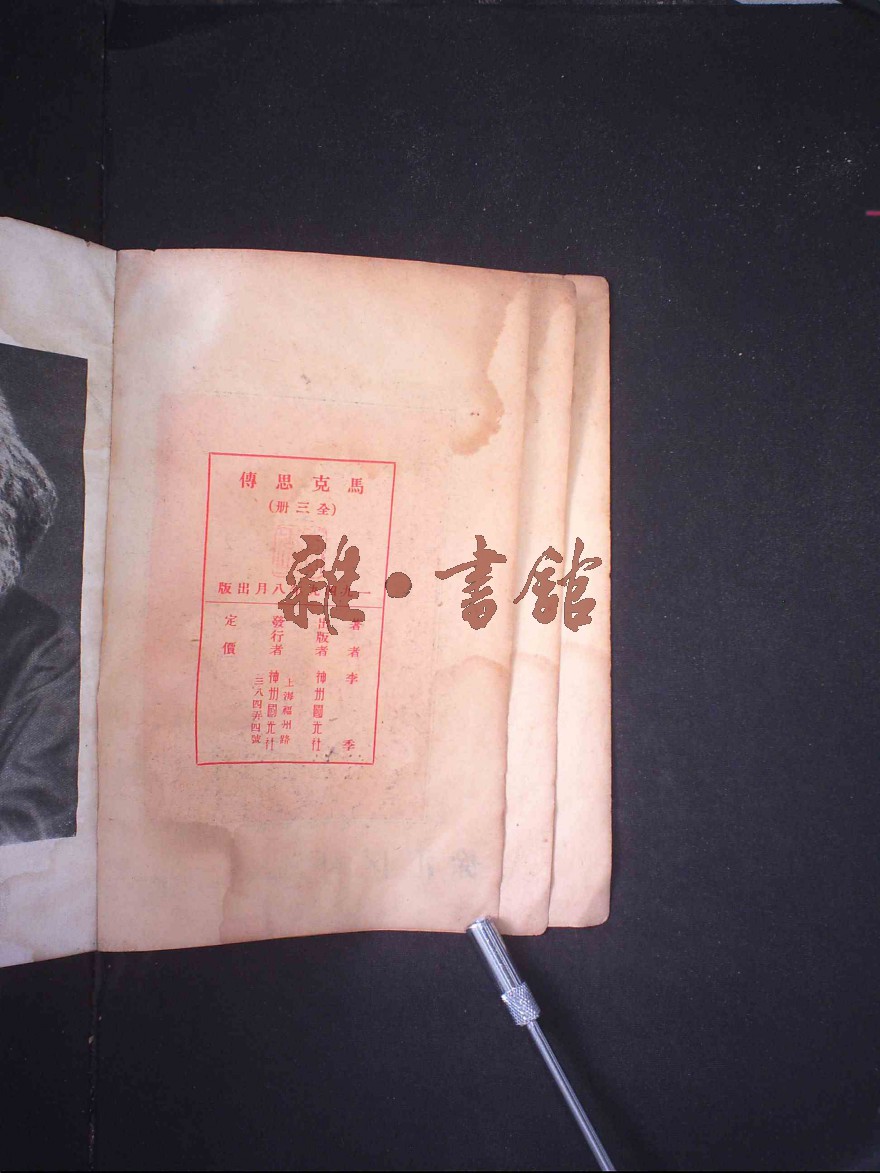 馬克思傳
(全三册)
八月出版
著者 李季
出版者 神州國光社
發行者 神州國光社
上海福州路
三八四弄四號
定價
雜·書館